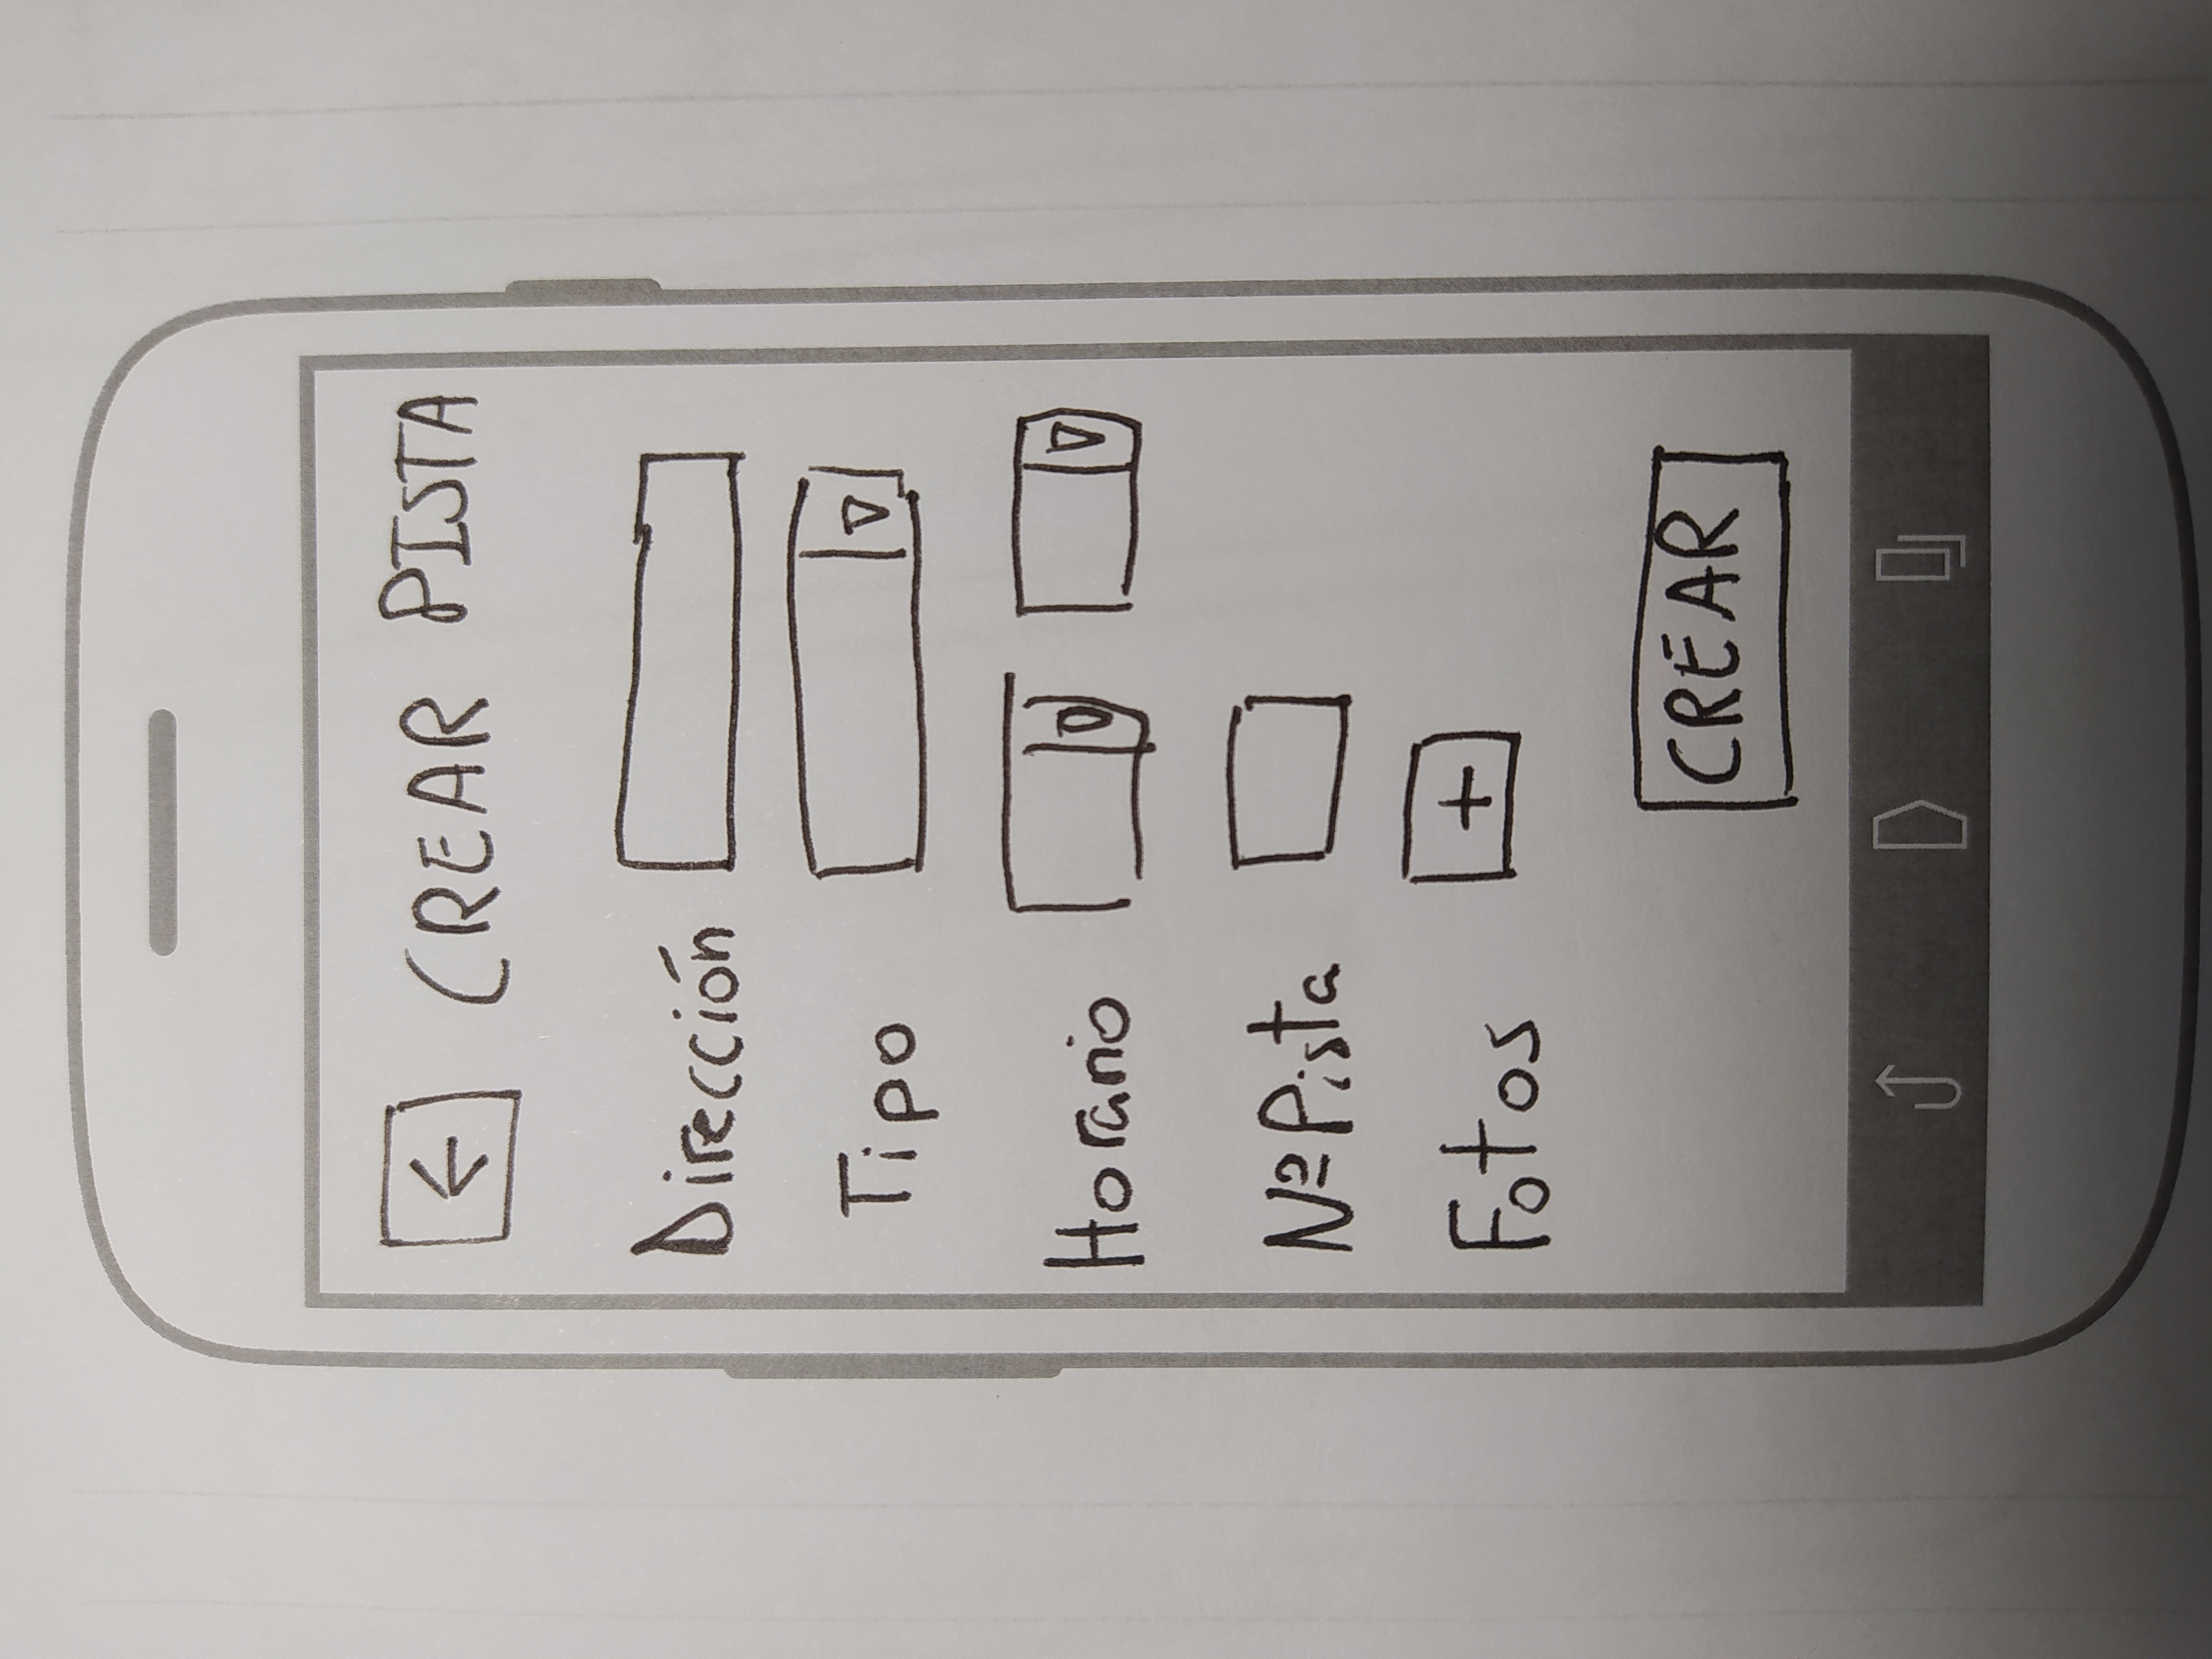 CREAR PISTA
Dirección
Tipo
Horario
Nº Pista
Fotos
+
CREAR